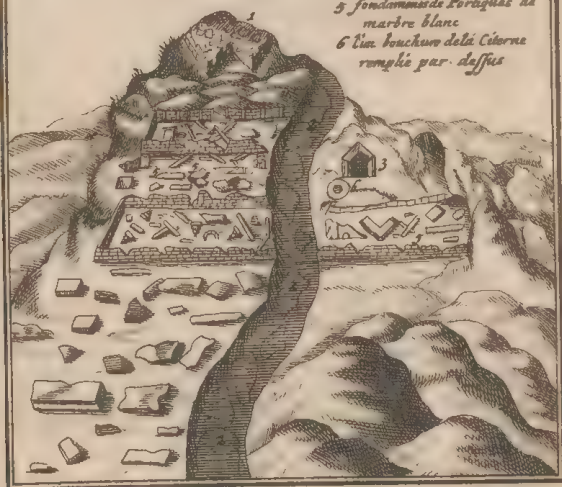 5 fondaments de Portiques de
marbre blanc
6 bouchure dela Citerne
remplie par dessus
1
3
2